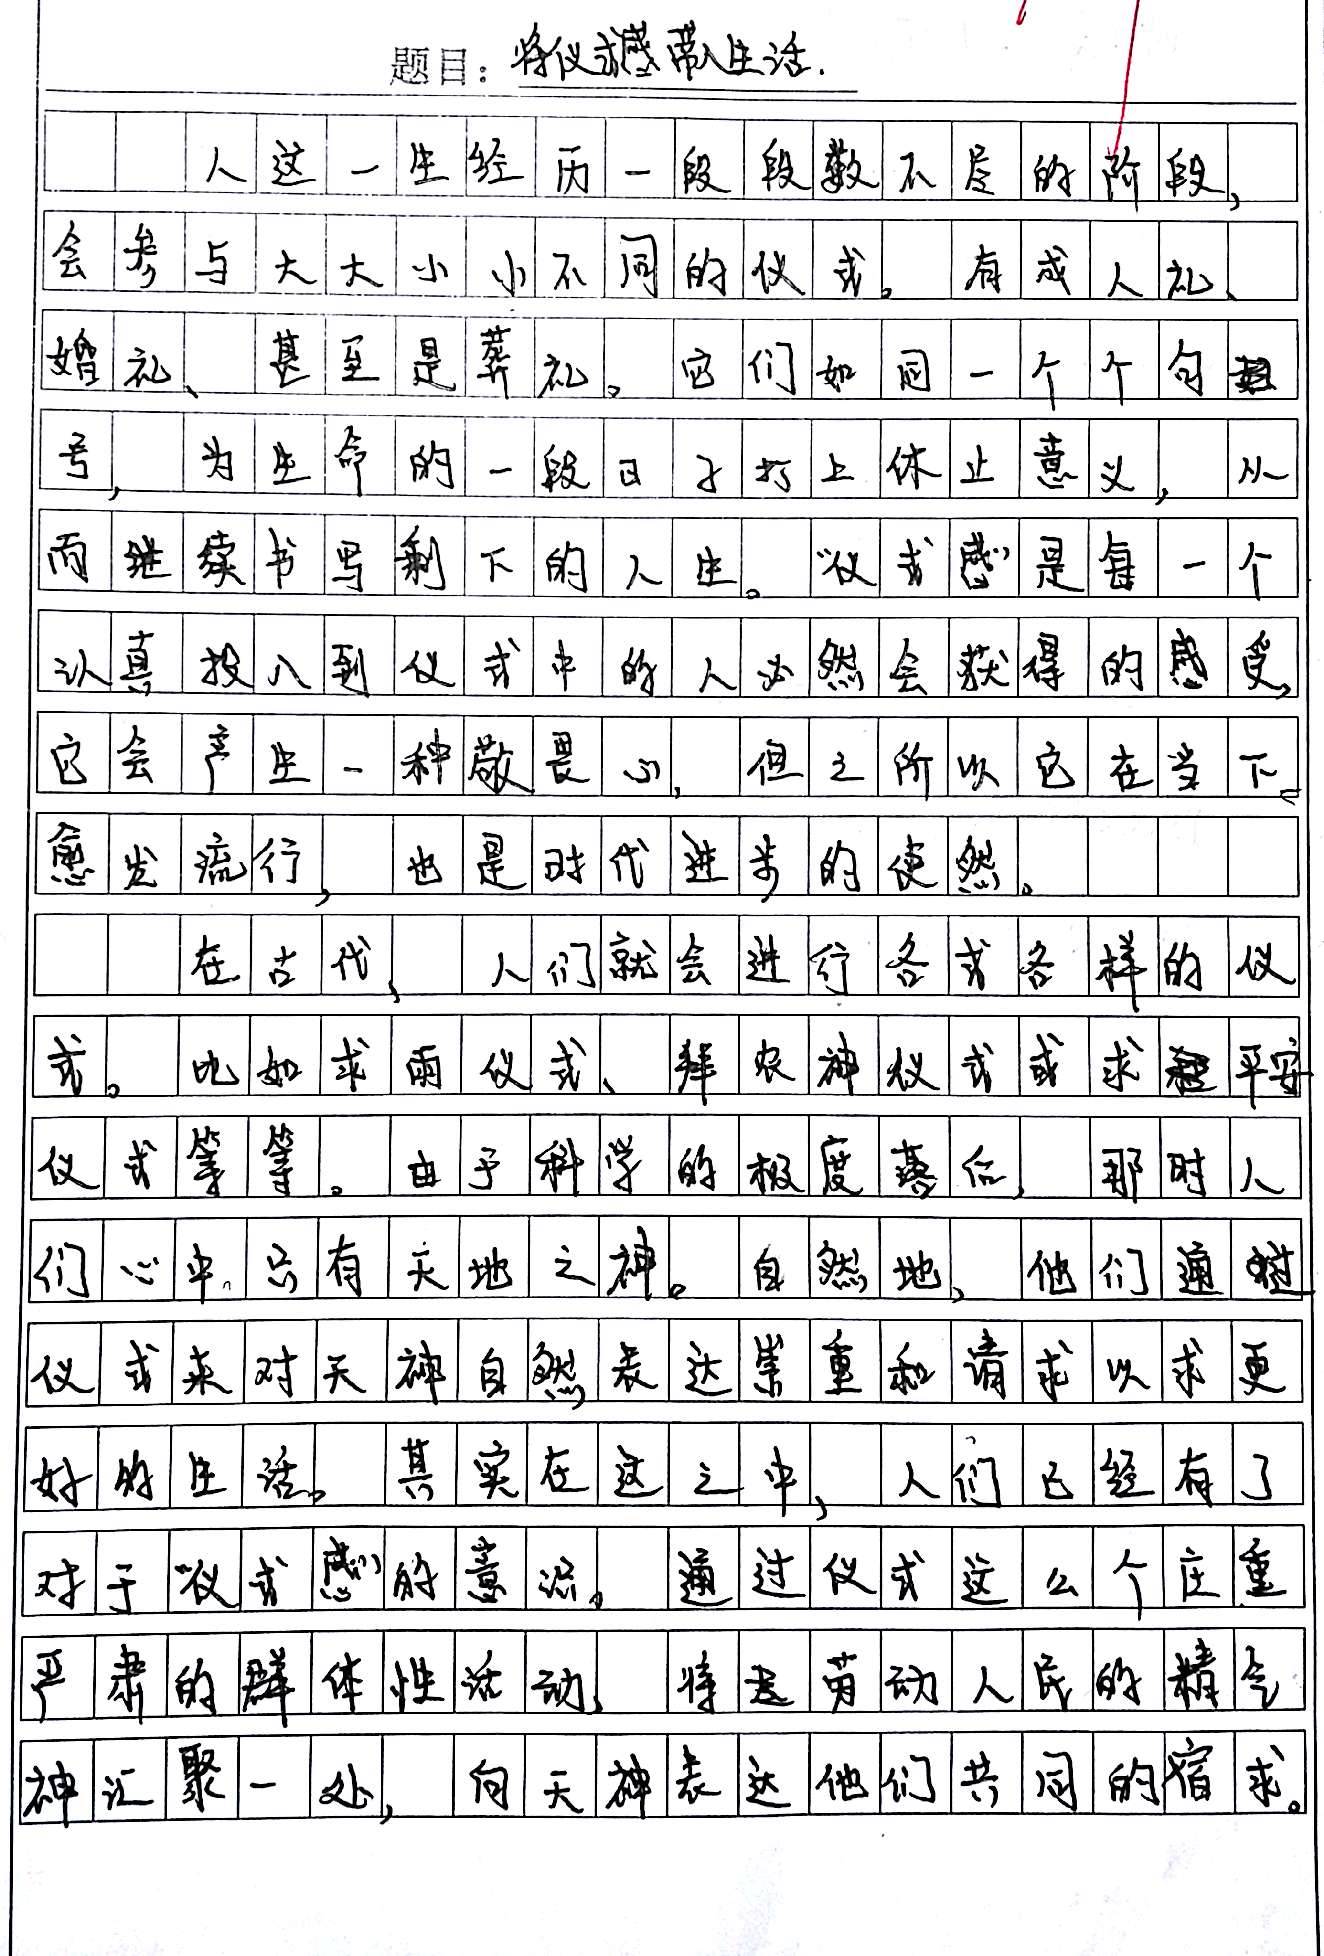 题目：将仪式感带入生活.
人这一生经历一段段数不尽的阶段，
会参与大大小小不同的仪式。有成人礼、
婚礼、甚至是葬礼。它们如同一个个句
号，为生命的一段日子打上休止意义，从
而继续书写剩下的人生。“仪式感”是每一个
认真投入到仪式中的人必然会获得的感受，
它会产生一种敬畏心，但之所以它在当下
愈发流行，也是时代进步的使然。
在古代，人们就会进行各式各样的仪
式。比如求雨仪式、拜农神仪式或求平安
仪式等等。由于科学的极度落后，那时人
们心中只有天地之神。自然地，他们通过
仪式来对天神自然表达崇重和请求以求更
好的生活。其实在这之中，人们已经有了
对于“仪式感”的意识。通过仪式这么个庄重
严肃的群体性活动，将劳动人民的精气
神汇聚一处，向天神表达他们共同的宿求。